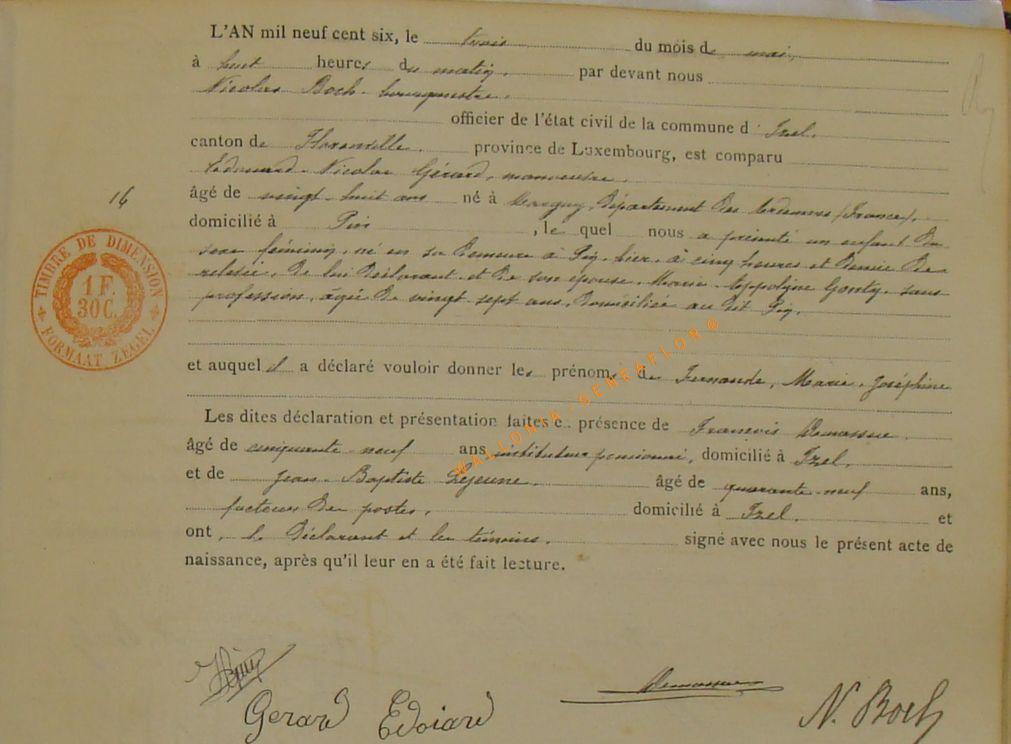 L'AN mil neuf cent six, le trois du mois de mai,
à huit heures du matin, par devant nous
Nicolas Boch, bourgmestre,
officier de l'état civil de la commune d'Izel,
canton de Florenville, province de Luxembourg, est comparu
Edouard Nicolas Gérard, manoeuvre,
16
âgé de vingt-huit ans né à Margny, département des Ardennes (France),
domicilié à Pin, le quel nous a présenté un enfant du
sexe féminin, né en sa demeure à Pin, hier, à cinq heures et demie de
relevée, de lui déclarant et de son épouse Marie sans
profession, âgée de vingt sept ans, domiciliée au dit Pin,
TIMBRE DE DIMENSION
1 F.
30 C.
FORMAAT ZEGEL
et auquel il a déclaré vouloir donner les prénoms de Fernande, Marie, Joséphine
WALLONIA-GENEAFLOR®
Les dites déclaration et présentation faites en présence de François
âgé de cinquante neuf ans instituteur pensionné, domicilié à Izel,
et de Jean Baptiste Lejeune, âgé de quarante-neuf ans,
facteur des postes, domicilié à Izel, et
ont, le déclarant et les témoins, signé avec nous le présent acte de
naissance, après qu'il leur en a été fait lecture.
Gerard Edoiard
N. Boch